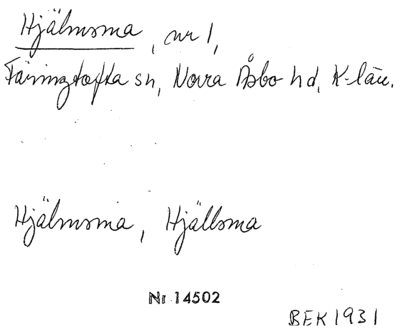 Hjälmsma, nr 1,
Färingtofta sn, Norra Åsbo hd, K-län.
Hjälmsma, Hjällsma
Nr 14502
BEK 1931